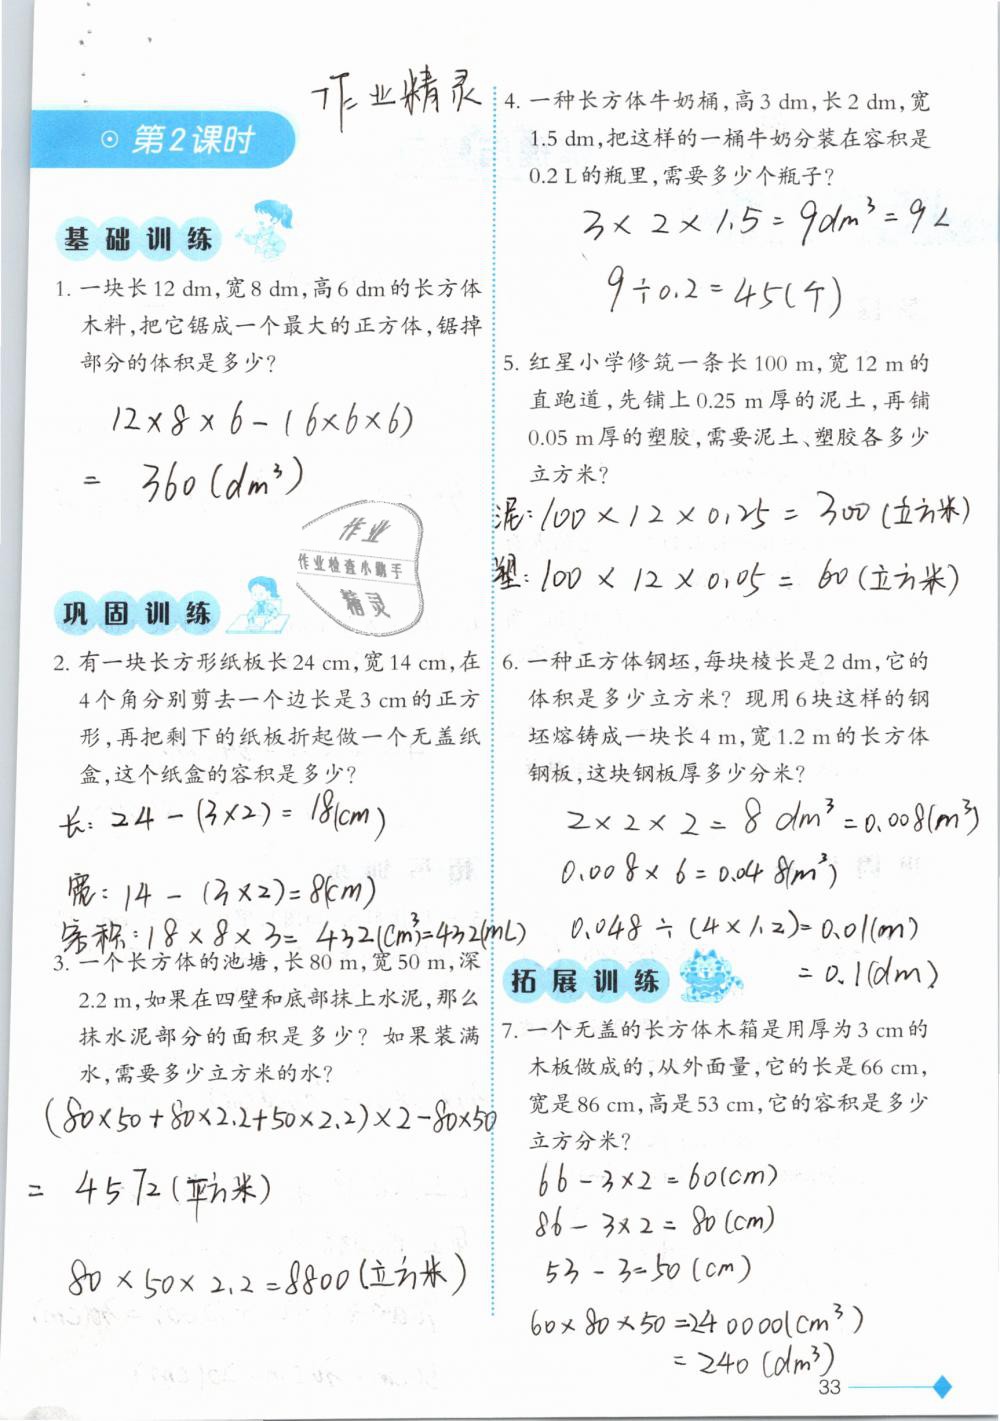 作业精灵
第2课时
基础训练
1. 一块长12 dm,宽8 dm,高6 dm的长方体
木料,把它锯成一个最大的正方体,锯掉
部分的体积是多少?
12×8×6-(6×6×6)
= 360(dm³)
作业
作业检查小帮手
精灵
巩固训练
2. 有一块长方形纸板长24 cm,宽14 cm,在
4个角分别剪去一个边长是3 cm的正方
形,再把剩下的纸板折起做一个无盖纸
盒,这个纸盒的容积是多少?
长: 24-(3×2)= 18(cm)
宽: 14-(3×2)=8(cm)
容积: 18×8×3= 432(cm³)=432(mL)
3. 一个长方体的池塘,长80 m,宽50 m,深
2.2 m,如果在四壁和底部抹上水泥,那么
抹水泥部分的面积是多少? 如果装满
水,需要多少立方米的水?
(80×50+80×2.2+50×2.2)×2-80×50
= 4572(平方米)
80×50×2.2=8800(立方米)
4. 一种长方体牛奶桶,高3 dm,长2 dm,宽
1.5 dm,把这样的一桶牛奶分装在容积是
0.2 L的瓶里,需要多少个瓶子?
3×2×1.5=9dm³=9L
9÷0.2=45(个)
5. 红星小学修筑一条长100 m,宽12 m的
直跑道,先铺上0.25 m厚的泥土,再铺
0.05 m厚的塑胶,需要泥土、塑胶各多少
立方米?
泥: 100×12×0.25= 300(立方米)
塑: 100×12×0.05= 60(立方米)
6. 一种正方体钢坯,每块棱长是2 dm,它的
体积是多少立方米? 现用6块这样的钢
坯熔铸成一块长4 m,宽1.2 m的长方体
钢板,这块钢板厚多少分米?
2×2×2=8 dm³=0.008(m³)
0.008×6=0.048(m³)
0.048÷(4×1.2)=0.01(m)
=0.1(dm)
拓展训练
7. 一个无盖的长方体木箱是用厚为3 cm的
木板做成的,从外面量,它的长是66 cm,
宽是86 cm,高是53 cm,它的容积是多少
立方分米?
66-3×2=60(cm)
86-3×2=80(cm)
53-3=50(cm)
60×80×50=240000(cm³)
=240(dm³)
33